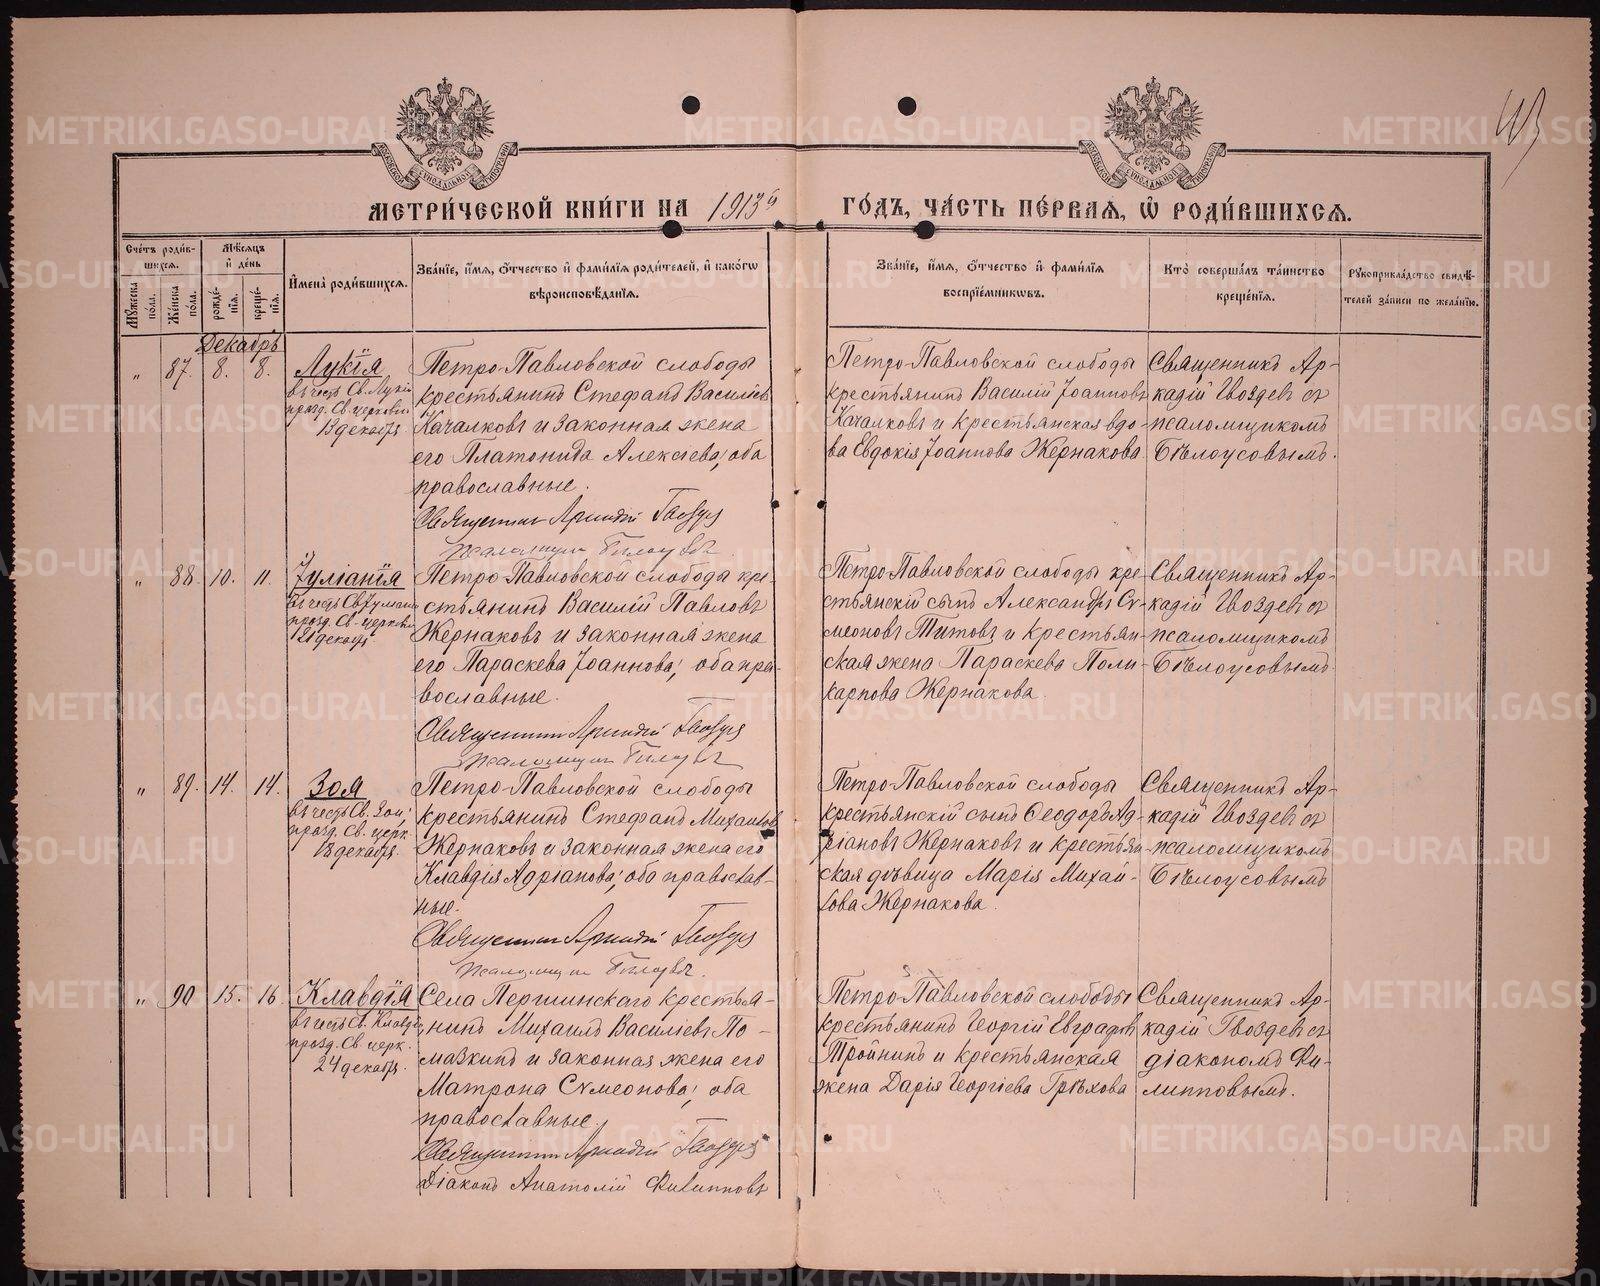 МЕТРИ́ЧЕСКОЙ КНИ́ГИ НА 1913й ГО́ДЪ, ЧА́СТЬ ПЕ́РВАЯ, Ѡ҆ РОДИ́ВШИХСЯ.
Сче́тъ роди́в-
шихся.
Мѣ́сяцъ
и҆ де́нь
Мꙋ́жеска
пола.
Же́нска
по́ла.
рожде́-
нїя.
креще́-
нїя.
И҆мена̀ роди́вшихся.
Зва́нїе, и҆́мя, ѻ҆́тчество и҆ фами́лїя роди́телей, и҆ како́гѡ
вѣроисповѣ́данїя.
Зва́нїе, и҆́мя, ѻ҆́тчество и҆ фами́лїя
воспрїе́мникѡвъ.
Кто̀ соверша́лъ та́инство
креще́нїя.
Рꙋкоприкла́дство свидѣ́-
телей за́писи по жела́нїю.
Декабрь
„ 87. 8. 8.
Лукія
въ честь Св. Лукіи
празд. Св. церковью
13 декабря
Петро-Павловской слободы
крестьянинъ Стефанъ Василіевъ
Качалковъ и законная жена
его Платонида Алексіева; оба
православные.
Священникъ Аркадій Гвоздев
псаломщикъ Бѣлоусовъ
Петро-Павловской слободы
крестьянинъ Василій Іоанновъ
Качалковъ и крестьянская вдо-
ва Евдокія Іоаннова Жернакова
Священникъ Ар-
кадій Гвоздевъ съ
псаломщикомъ
Бѣлоусовымъ.
„ 88. 10. 11.
Іуліанія
въ честь Св. Іуліаніи
празд. Св. церковью
21 декабр.
Петро-Павловской слободы кре-
стьянинъ Василій Павловъ
Жернаковъ и законная жена
его Параскева Іоаннова; оба пра-
вославные.
Священникъ Аркадій Гвоздев
псаломщикъ Бѣлоусовъ
Петро-Павловской слободы кре-
стьянскій сынъ Александръ Сѵ-
меоновъ Титовъ и крестьян-
ская жена Параскева Поли-
карпова Жернакова.
Священникъ Ар-
кадій Гвоздевъ съ
псаломщикомъ
Бѣлоусовымъ.
„ 89. 14. 14.
Зоя
въ честь Св. Зои;
празд. Св. церк.
18 декабря.
Петро-Павловской слободы
крестьянинъ Стефанъ Михаиловъ
Жернаковъ и законная жена его
Клавдія Адріанова; оба православ-
ные.
Священникъ Аркадій Гвоздев
псаломщикъ Бѣлоусовъ.
Петро-Павловской слободы
крестьянскій сынъ Ѳеодоръ Ад-
ріановъ Жернаковъ и крестьян-
ская дѣвица Марія Михай-
лова Жернакова.
Священникъ Ар-
кадій Гвоздевъ съ
псаломщикомъ
Бѣлоусовымъ
„ 90 15. 16.
Клавдія
въ честь Св. Клавдіи
празд. Св. церк.
24 декабря.
Села Першинскаго крестья-
нинъ Михаилъ Василіевъ По-
мазкинъ и законная жена его
Матрона Сѵмеонова; оба
православные.
Священникъ Аркадій Гвоздев
Діаконъ Анатолій Филипповъ
Петро-Павловской слободы
крестьянинъ Георгій Евграфов
Тройнинъ и крестьянская
жена Дарія Георгіева Грѣхова
Священникъ Ар-
кадій Гвоздевъ съ
діакономъ Фи-
липповымъ.